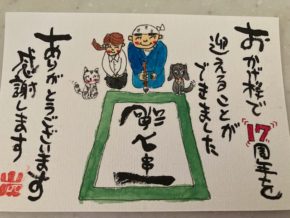 おかげ様で
17周年を
迎えることが
できました
ありがとうございます
感謝します